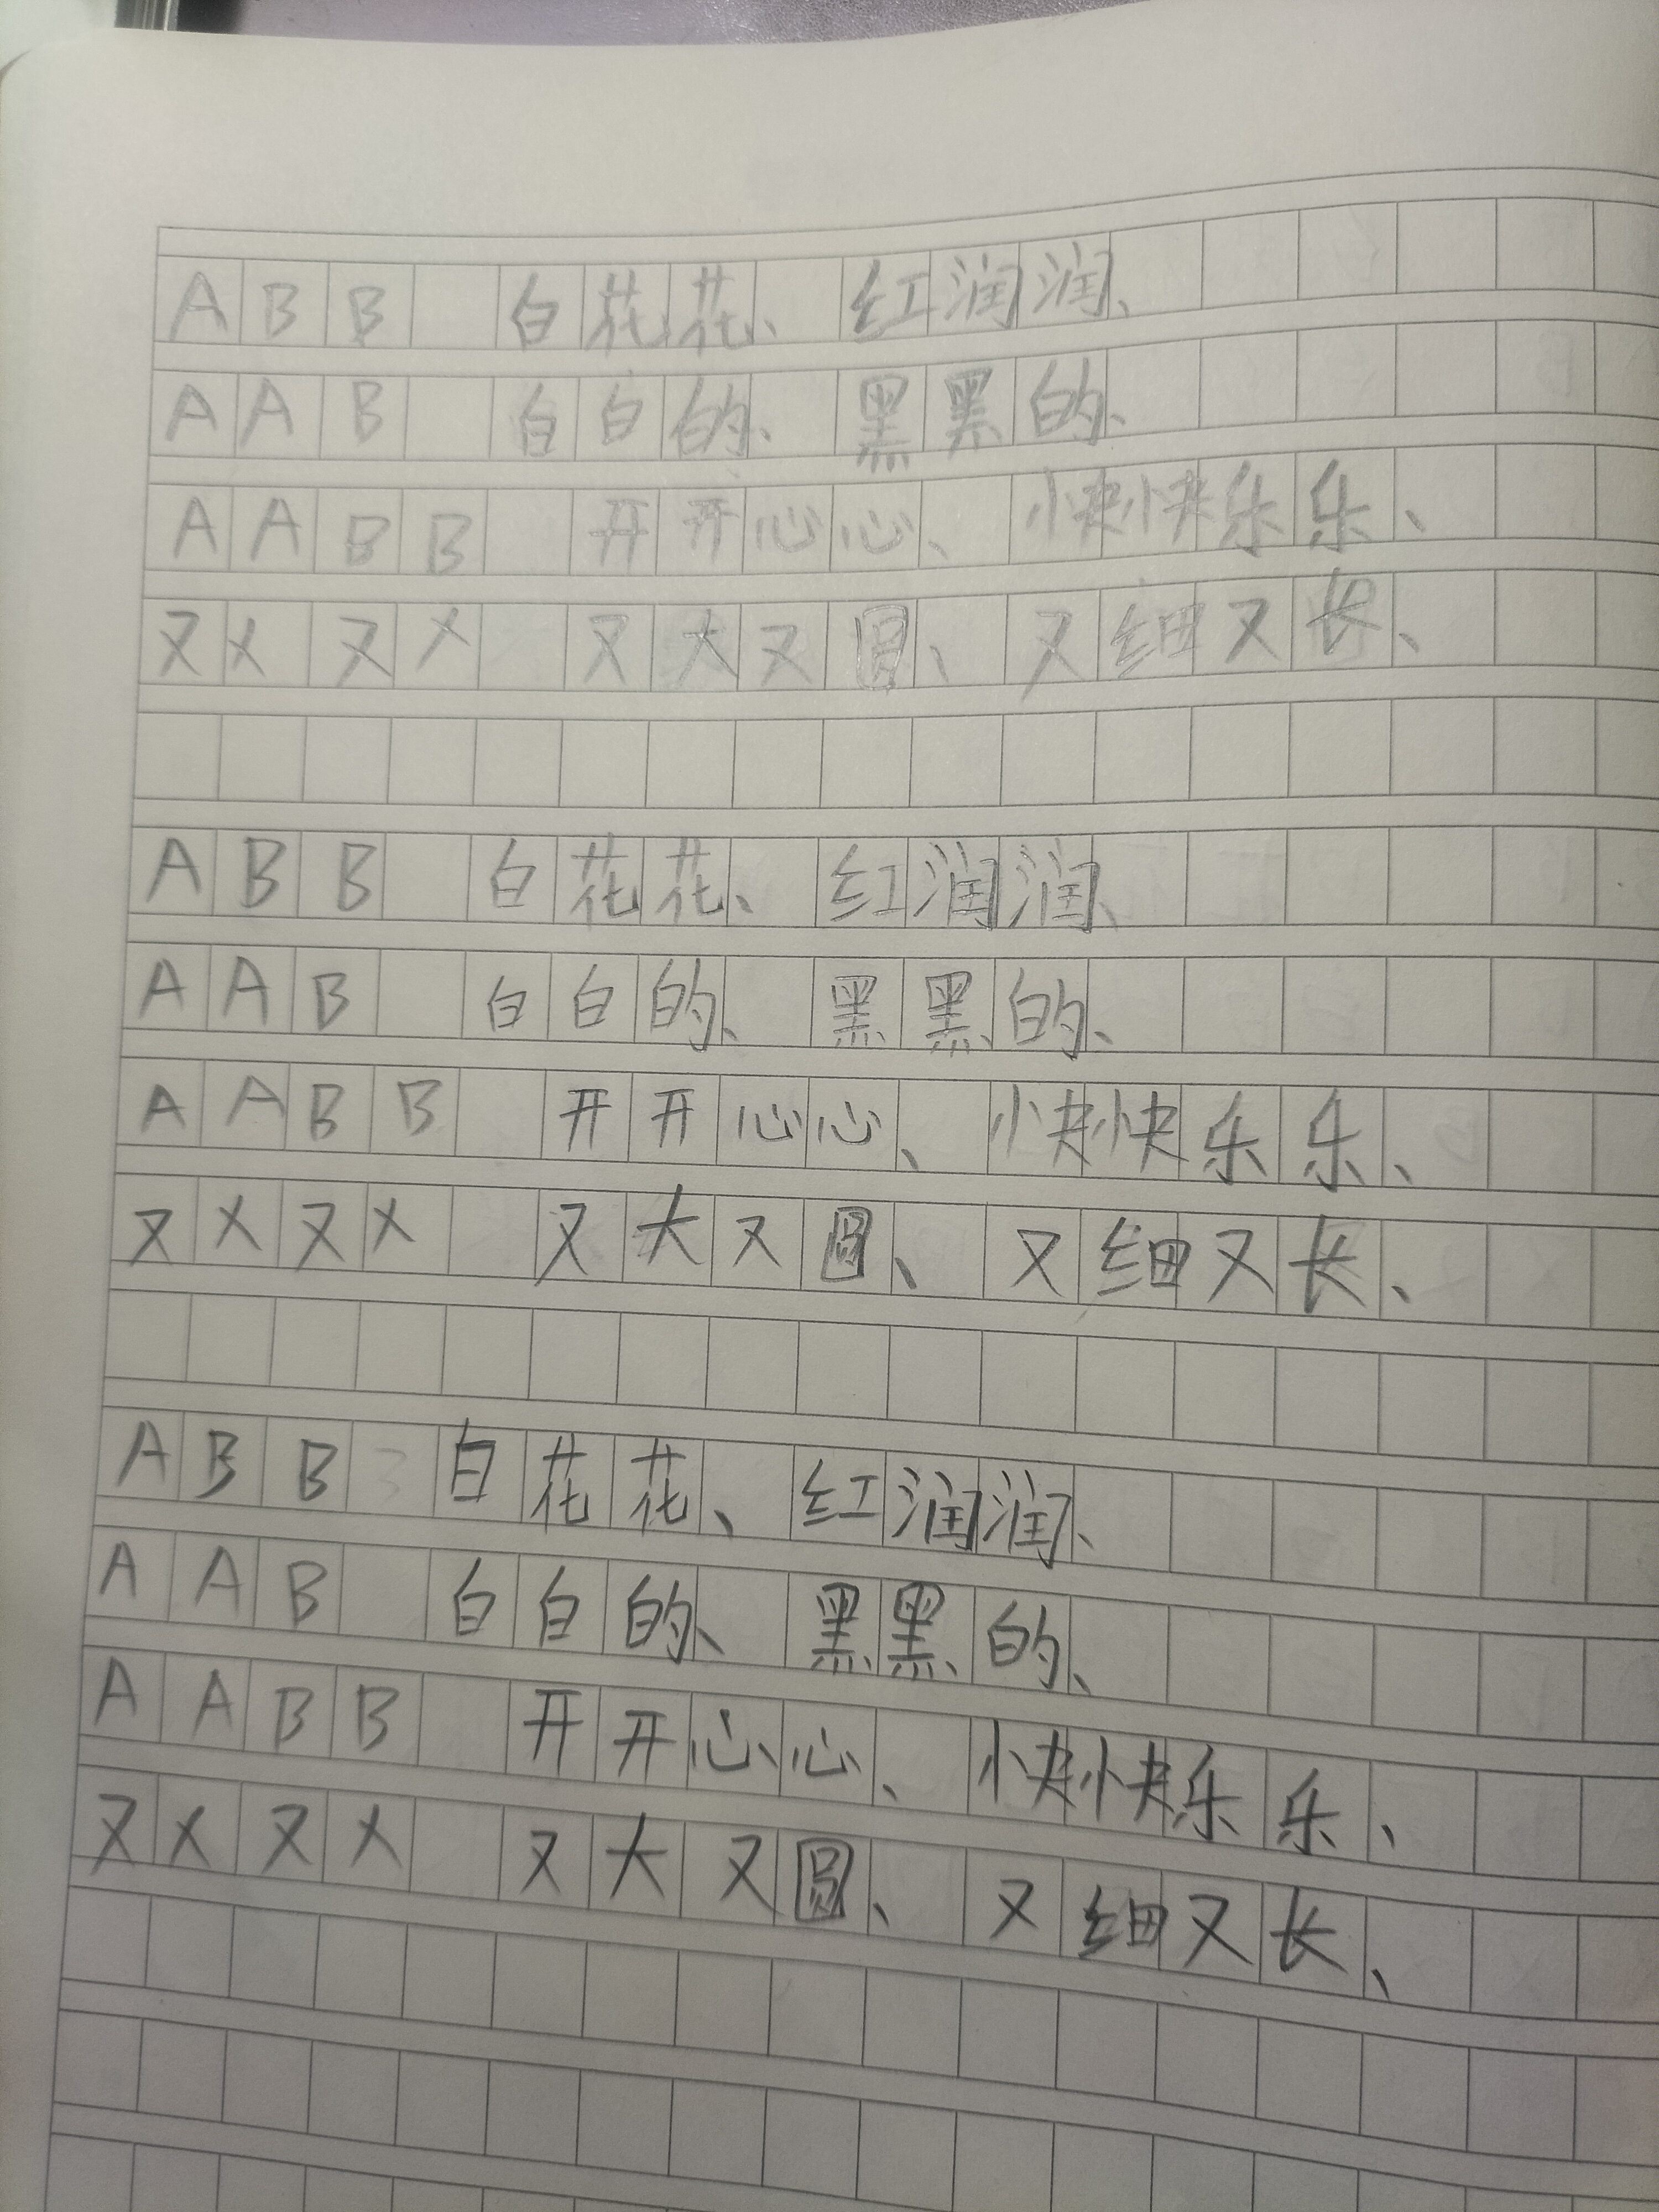 ABB 白花花、红润润、
AAB 白白的、黑黑的、
AABB 开开心心、快快乐乐、
又×又× 又大又圆、又细又长、
ABB 白花花、红润润、
AAB 白白的、黑黑的、
AABB 开开心心、快快乐乐、
又×又× 又大又圆、又细又长、
ABB 白花花、红润润、
AAB 白白的、黑黑的、
AABB 开开心心、快快乐乐、
又×又× 又大又圆、又细又长、